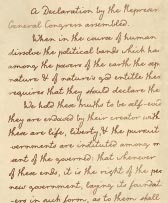 A Declaration by the Represen
General Congress assembled.
When in the course of human
dissolve the political bands which ha
among the powers of the earth the sep
nature & of nature's god entitle the
requires that they should declare the
We hold these truths to be self-evid
they are endowed by their creator with
these are life, liberty, & the pursuit
vernments are instituted among m
sent of the governed: that whenever
of these ends, it is the right of the peo
new government, laying its foundat
ers in such form, as to them shall